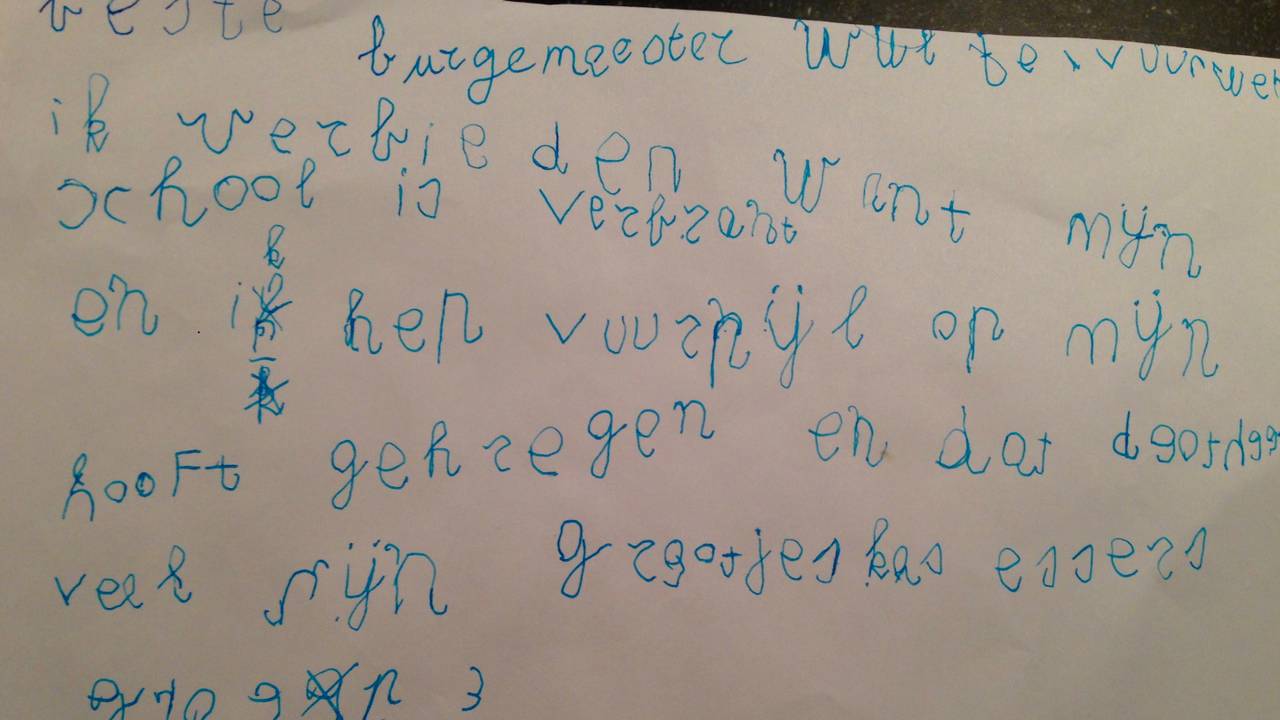 beste
burgemeester wilt je vuurwer
ik verbieden want mijn
school is verbrant
en ik hep vuurpijl op mijn
hooft gekregen en dat
veel pijn groetjes kas essers
groep 3